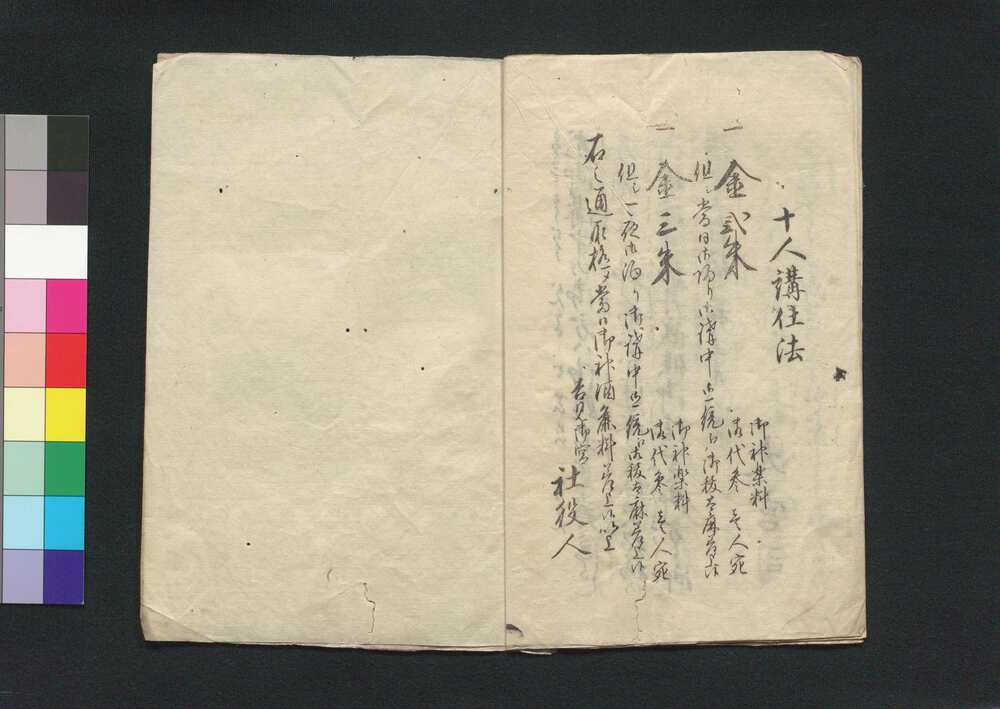 十人講仕法
一 金弐朱
御神楽料
御代参 壱人宛
但シ当日御帰り御講中御一統江御祓大麻差上候
一 金三朱
御神楽料
御代参 壱人宛
但シ一夜御泊り御講中御一統江御祓大麻差上候
右之通 当日御神酒 料差上候以上
社役人